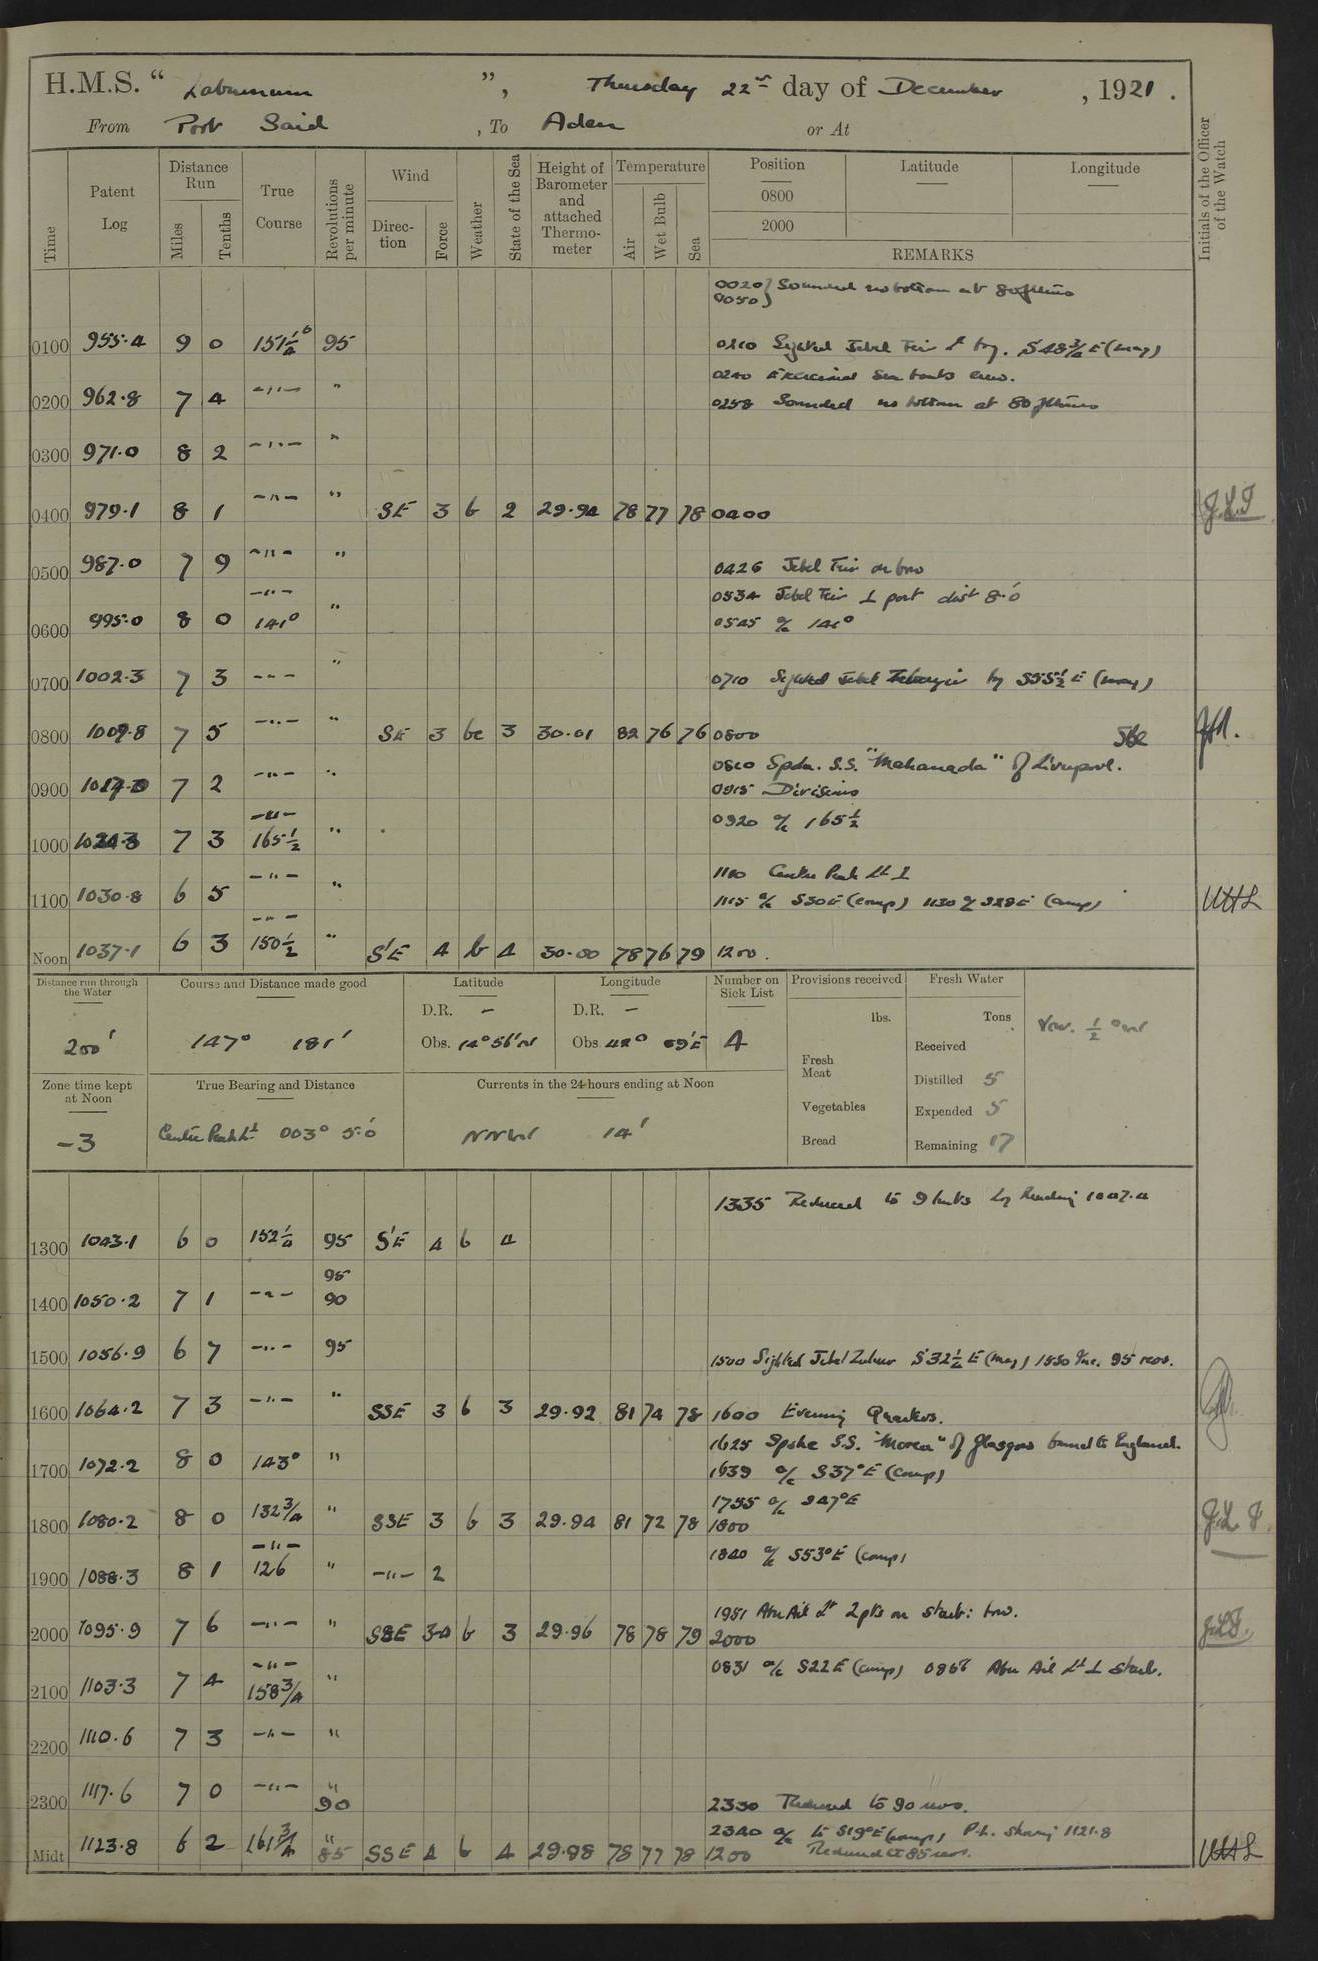 H.M.S. “ Laburnum ”, Thursday 22nd day of December, 1921.
From Port Said, To Aden or At
Time
Patent Log
Distance Run
Miles
Tenths
True Course
Revolutions per minute
Wind
Direction
Force
Weather
State of the Sea
Height of Barometer and attached Thermometer
Temperature
Air
Wet Bulb
Sea
Position
0800
2000
Latitude
Longitude
REMARKS
Initials of the Officer of the Watch
0020 } Sounded no bottom at 80 fthms
0050 }
0100 955.4 9 0 151¼° 95 0110 Sighted Jebel Teir Lt brg. S48¾E (mag)
0240 Exercised Sea boats crew.
0200 962.8 7 4 —"— " 0258 Sounded no bottom at 80 fthms
0300 971.0 8 2 —"— "
0400 979.1 8 1 —"— " SE 3 b 2 29.94 78 77 78 0400 J.L.F
0500 987.0 7 9 —"— " 0426 Jebel Teir on bow
—"— 0534 Jebel Teir ⊥ port dist 8.0'
0600 995.0 8 0 141° " 0545 a/c 141°
0700 1002.3 7 3 --- " 0710 Sighted Jebel by S55½E (mag)
0800 1009.8 7 5 —"— " SE 3 bc 3 30.01 82 76 76 0800
0810 Spoken S.S. "Mahanada" of Liverpool.
0900 1017.0 7 2 —"— " 0915 Divisions
—"— 0920 a/c 165½
1000 1024.3 7 3 165½ "
—"— 1100 Centre Peak Lt ⊥
1100 1030.8 6 5 " 1115 a/c S30E (comp) 1130 a/c S28E (comp)
—"—
Noon 1037.1 6 3 150½ " S'E 4 b 4 30.00 78 76 79 1200.
Distance run through the Water
200'
Course and Distance made good
147° 181'
Latitude
D.R. —
Obs. 14°56'N
Longitude
D.R. —
Obs. 42° 09'E
Number on Sick List
4
Provisions received
lbs.
Fresh Meat
Vegetables
Bread
Fresh Water
Tons
Received
Distilled 5
Expended 5
Remaining 17
Var. ½°W
Zone time kept at Noon
-3
True Bearing and Distance
Centre Peak Lt 003° 5.0'
Currents in the 24 hours ending at Noon
NNW 14'
1335 Reduced to 9 knots Log Reading 1047.4
1300 1043.1 6 0 152¼ 95 S'E 4 b 4
95
1400 1050.2 7 1 —"— 90
1500 1056.9 6 7 —"— 95 1500 Sighted Jebel Zukur S32½E (mag) 1530 Inc. 95 revs.
1600 1064.2 7 3 —"— " SSE 3 b 3 29.92 81 74 78 1600 Evening Quarters.
1625 Spoke S.S. "Morea" of Glasgow bound to England.
1700 1072.2 8 0 143° " 1639 a/c S37°E (comp)
1755 a/c S47°E
1800 1080.2 8 0 132¾ " SSE 3 b 3 29.94 81 72 78 1800 J.L F.
—"— 1840 a/c S53°E (comp)
1900 1088.3 8 1 126 " —"— 2
1951 Abu Ail Lt 2pts on starb: bow.
2000 1095.9 7 6 —"— " SSE 3-4 b 3 29.96 78 78 79 2000 J.L.F.
—"— 0831 a/c S22E (comp) Abu Ail Lt ⊥ starb.
2100 1103.3 7 4 158¾ "
2200 1110.6 7 3 —"— "
"
2300 1117.6 7 0 —"— 90 2330 Reduced to 90 revs.
2340 a/c to S19°E (comp) P.L. showing 1121.8
Midt 1123.8 6 2 161¾ " 85 SSE 4 b 4 29.98 78 77 78 1200 Reduced to 85 revs.